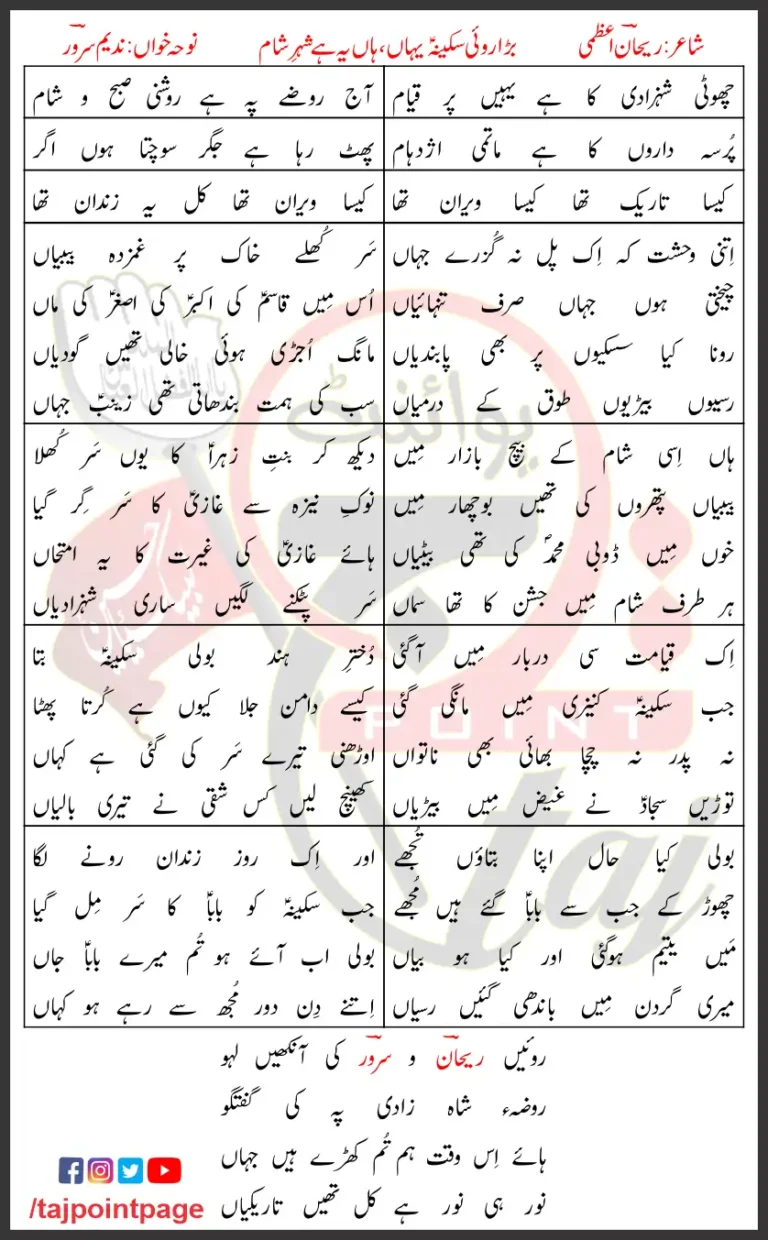 شاعر: ریحان اعظمی بڑا روئی سکینہؑ یہاں، ہاں یہ ہے شہرِ شام نوحہ خواں: ندیم سرور
چھوٹی شہزادی کا ہے یہیں پر قیام
آج روضے پہ ہے روشنی صبح و شام
پُرسہ داروں کا ہے ماتمی اژدہام
پھٹ رہا ہے جگر سوچتا ہوں اگر
کیسا تاریک تھا کیسا ویران تھا
کیسا ویران تھا کل یہ زندان تھا
اِتنی وحشت کہ اِک پل نہ گُزرے جہاں
چیختی ہوں جہاں صرف تنہائیاں
رونا کیا سسکیوں پر بھی پابندیاں
رسیوں بیڑیوں طوق کے درمیاں
سَر کُھلے خاک پر غمزدہ بیبیاں
اُس مِیں قاسمؑ کی اکبرؑ کی اصغرؑ کی ماں
مانگ اُجڑی ہوئی خالی تھیں گودیاں
سب کی ہمت بندھاتی تھی زینبؑ جہاں
ہاں اِسی شام کے بیچ بازار مِیں
بیبیاں پتھروں کی تھیں بوچھار مِیں
خوں مِیں ڈوبی محمدؐ کی تھی بیٹیاں
ہر طرف شام مِیں جشن کا تھا سماں
دیکھ کر بنتِ زہراؑ کا یوں سَر کُھلا
نوکِ نیزہ سے غازیؑ کا سَر گِر گیا
ہائے غازیؑ کی غیرت کا یہ امتحاں
سَر پٹکنے لگیں ساری شہزادیاں
اِک قیامت سی دربار مِیں آ گئی
جب سکینہؑ کنیزی مِیں مانگی گئی
نہ پدر نہ چچا بھائی بھی ناتواں
توڑیں سجادؑ نے غیض مِیں بیڑیاں
دُخترِ ہند بولی سکینہؑ بتا
کیسے دامن جلا کیوں ہے کُرتا پھٹا
اوڑھنی تیرے سَر کی گئی ہے کہاں
کھینچ لیں کس شقی نے تیری بالیاں
بولی کیا حال اپنا بتاؤں تُجھے
چھوڑ کے جب سے باباؑ گئے ہیں مُجھے
مَیں یتیم ہوگئی اور کیا ہو بیاں
میری گردن مِیں باندھی گئیں رسیاں
اور اِک روز زندان رونے لگا
جب سکینہؑ کو باباؑ کا سَر مِل گیا
بولی اب آئے ہو تُم میرے باباؑ جاں
اِتنے دِن دور مُجھ سے رہے ہو کہاں
روئیں ریحان و سرور کی آنکھیں لہو
روضہء شاہ زادی پہ کی گفتگو
ہائے اِس وقت ہم تُم کھڑے ہیں جہاں
نور ہی نور ہے کل تھیں تاریکیاں
/tajpointpage
پوائنٹ
POINT
taj